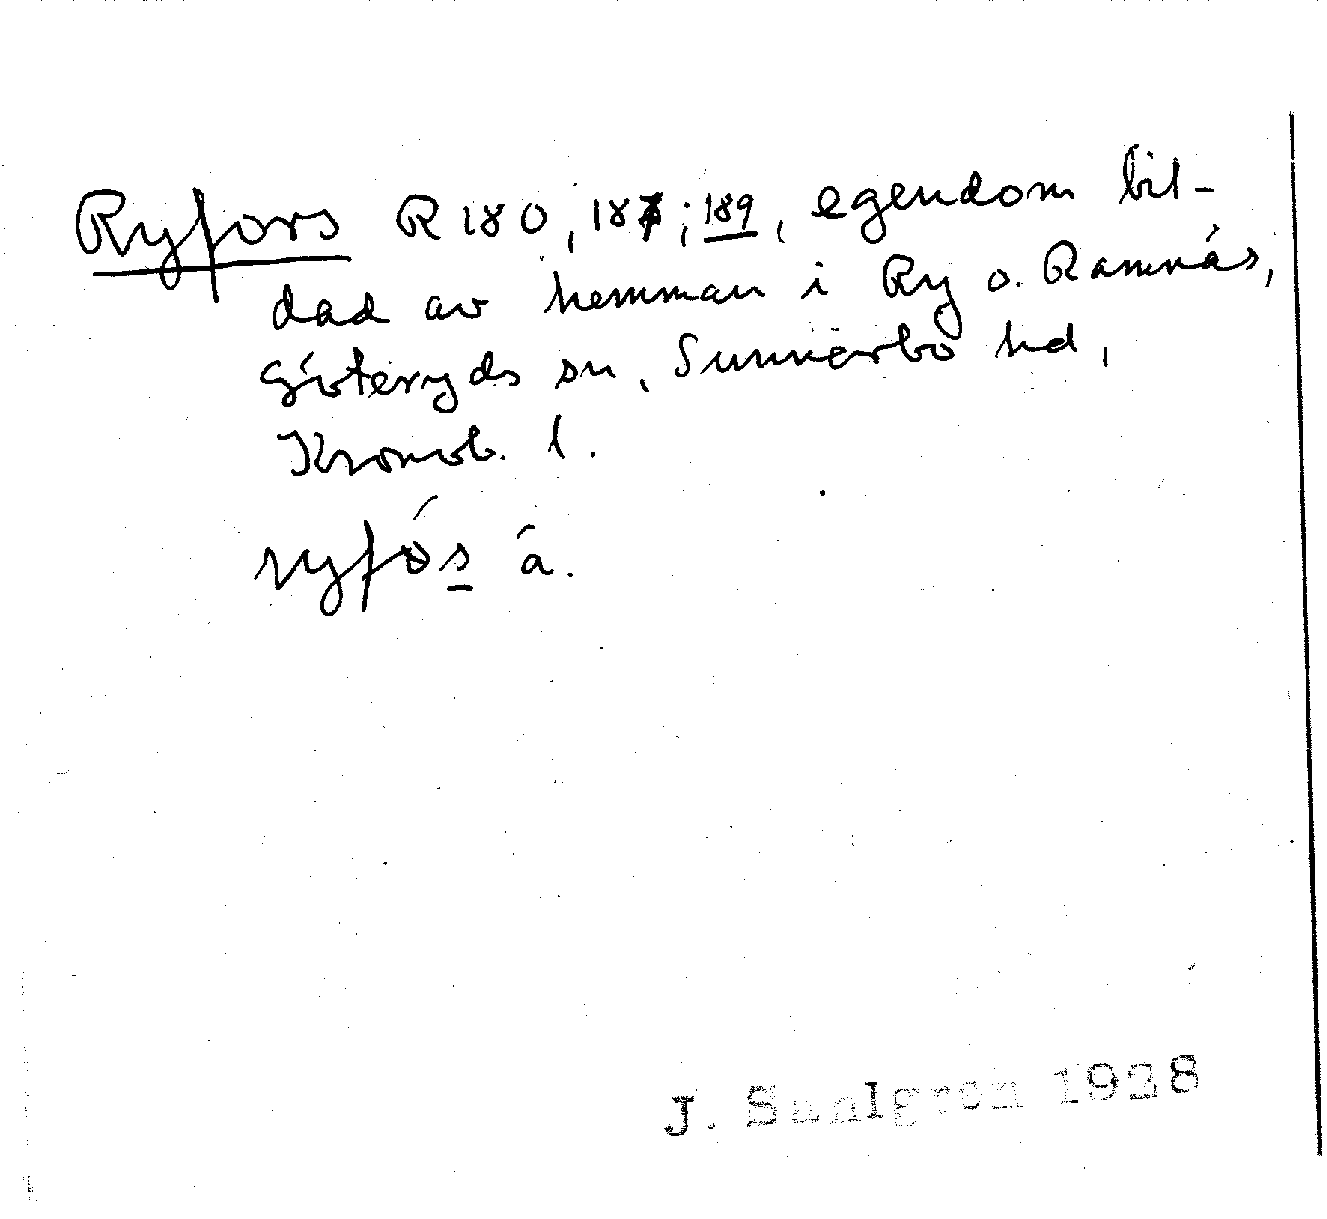 Ryfors R 180, 187; 189, egendom bil-
dad av hemman i Ry o. Ramnäs,
Göteryds sn, Sunnerbo hd,
Kronob. l.
ryfós á.
J. Sahlgren 1928